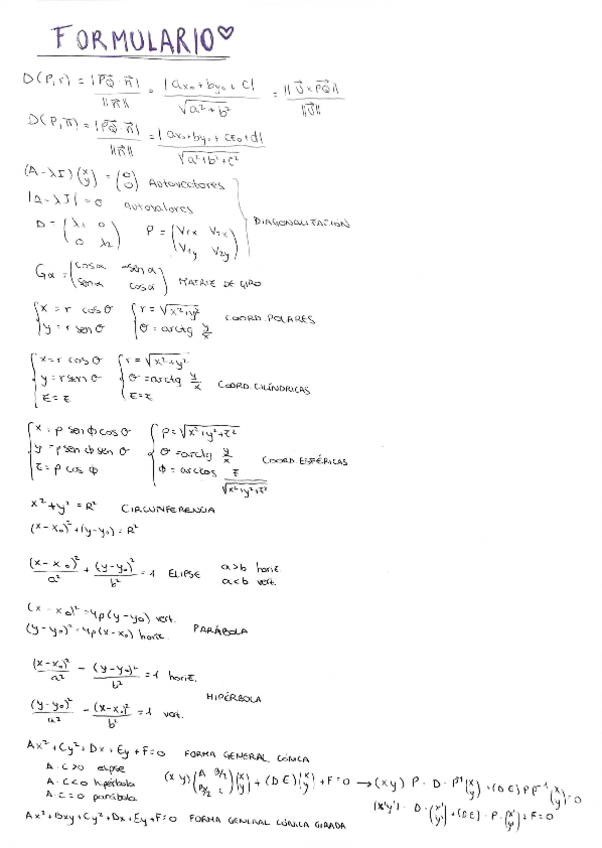 FORMULARIO♡
D(P,r) = |P⃗Q · n⃗| / ||n⃗|| = |ax₀+by₀+c| / √(a²+b²) = ||v⃗ × P⃗Q|| / ||v⃗||
D(P,π) = |P⃗Q · n⃗| / ||n⃗|| = |ax₀+by₀+cz₀+d| / √(a²+b²+c²)
(A-λI)(x y) = (0 0) Autovectores
|A-λI| = 0 autovalores
D = (λ₁ 0; 0 λ₂) P = (V₁x V₂x; V₁y V₂y) DIAGONALIZACIÓN
Gα = (cosα -senα; senα cosα) MATRIZ DE GIRO
{x = r cosθ {r = √(x²+y²)
{y = r senθ {θ = arctg y/x COORD. POLARES
{x = r cosθ {r = √(x²+y²)
{y = r senθ {θ = arctg y/x COORD. CILÍNDRICAS
{z = z {z = z
{x = ρ senϕ cosθ {ρ = √(x²+y²+z²)
{y = ρ senϕ senθ {θ = arctg y/x COORD. ESFÉRICAS
{z = ρ cosϕ {ϕ = arccos z/√(x²+y²+z²)
x² + y² = R² CIRCUNFERENCIA
(x-x₀)² + (y-y₀)² = R²
(x-x₀)²/a² + (y-y₀)²/b² = 1 ELIPSE a>b horiz.
a<b vert.
(x-x₀)² = 4p(y-y₀) vert.
(y-y₀)² = 4p(x-x₀) horiz. PARÁBOLA
(x-x₀)²/a² - (y-y₀)²/b² = 1 horiz.
HIPÉRBOLA
(y-y₀)²/a² - (x-x₀)²/b² = 1 vert.
Ax² + Cy² + Dx + Ey + F = 0 FORMA GENERAL CÓNICA
A·C>0 elipse
A·C<0 hipérbola
A·C=0 parábola
(x y)(A B/2; B/2 C)(x y) + (D E)(x y) + F = 0 → (x y) P · D · P⁻¹(x y) + (D E) P P⁻¹(x y) = 0
(x' y') · D · (x' y') + (D E) · P · (x' y') + F = 0
Ax² + Bxy + Cy² + Dx + Ey + F = 0 FORMA GENERAL CÓNICA GIRADA